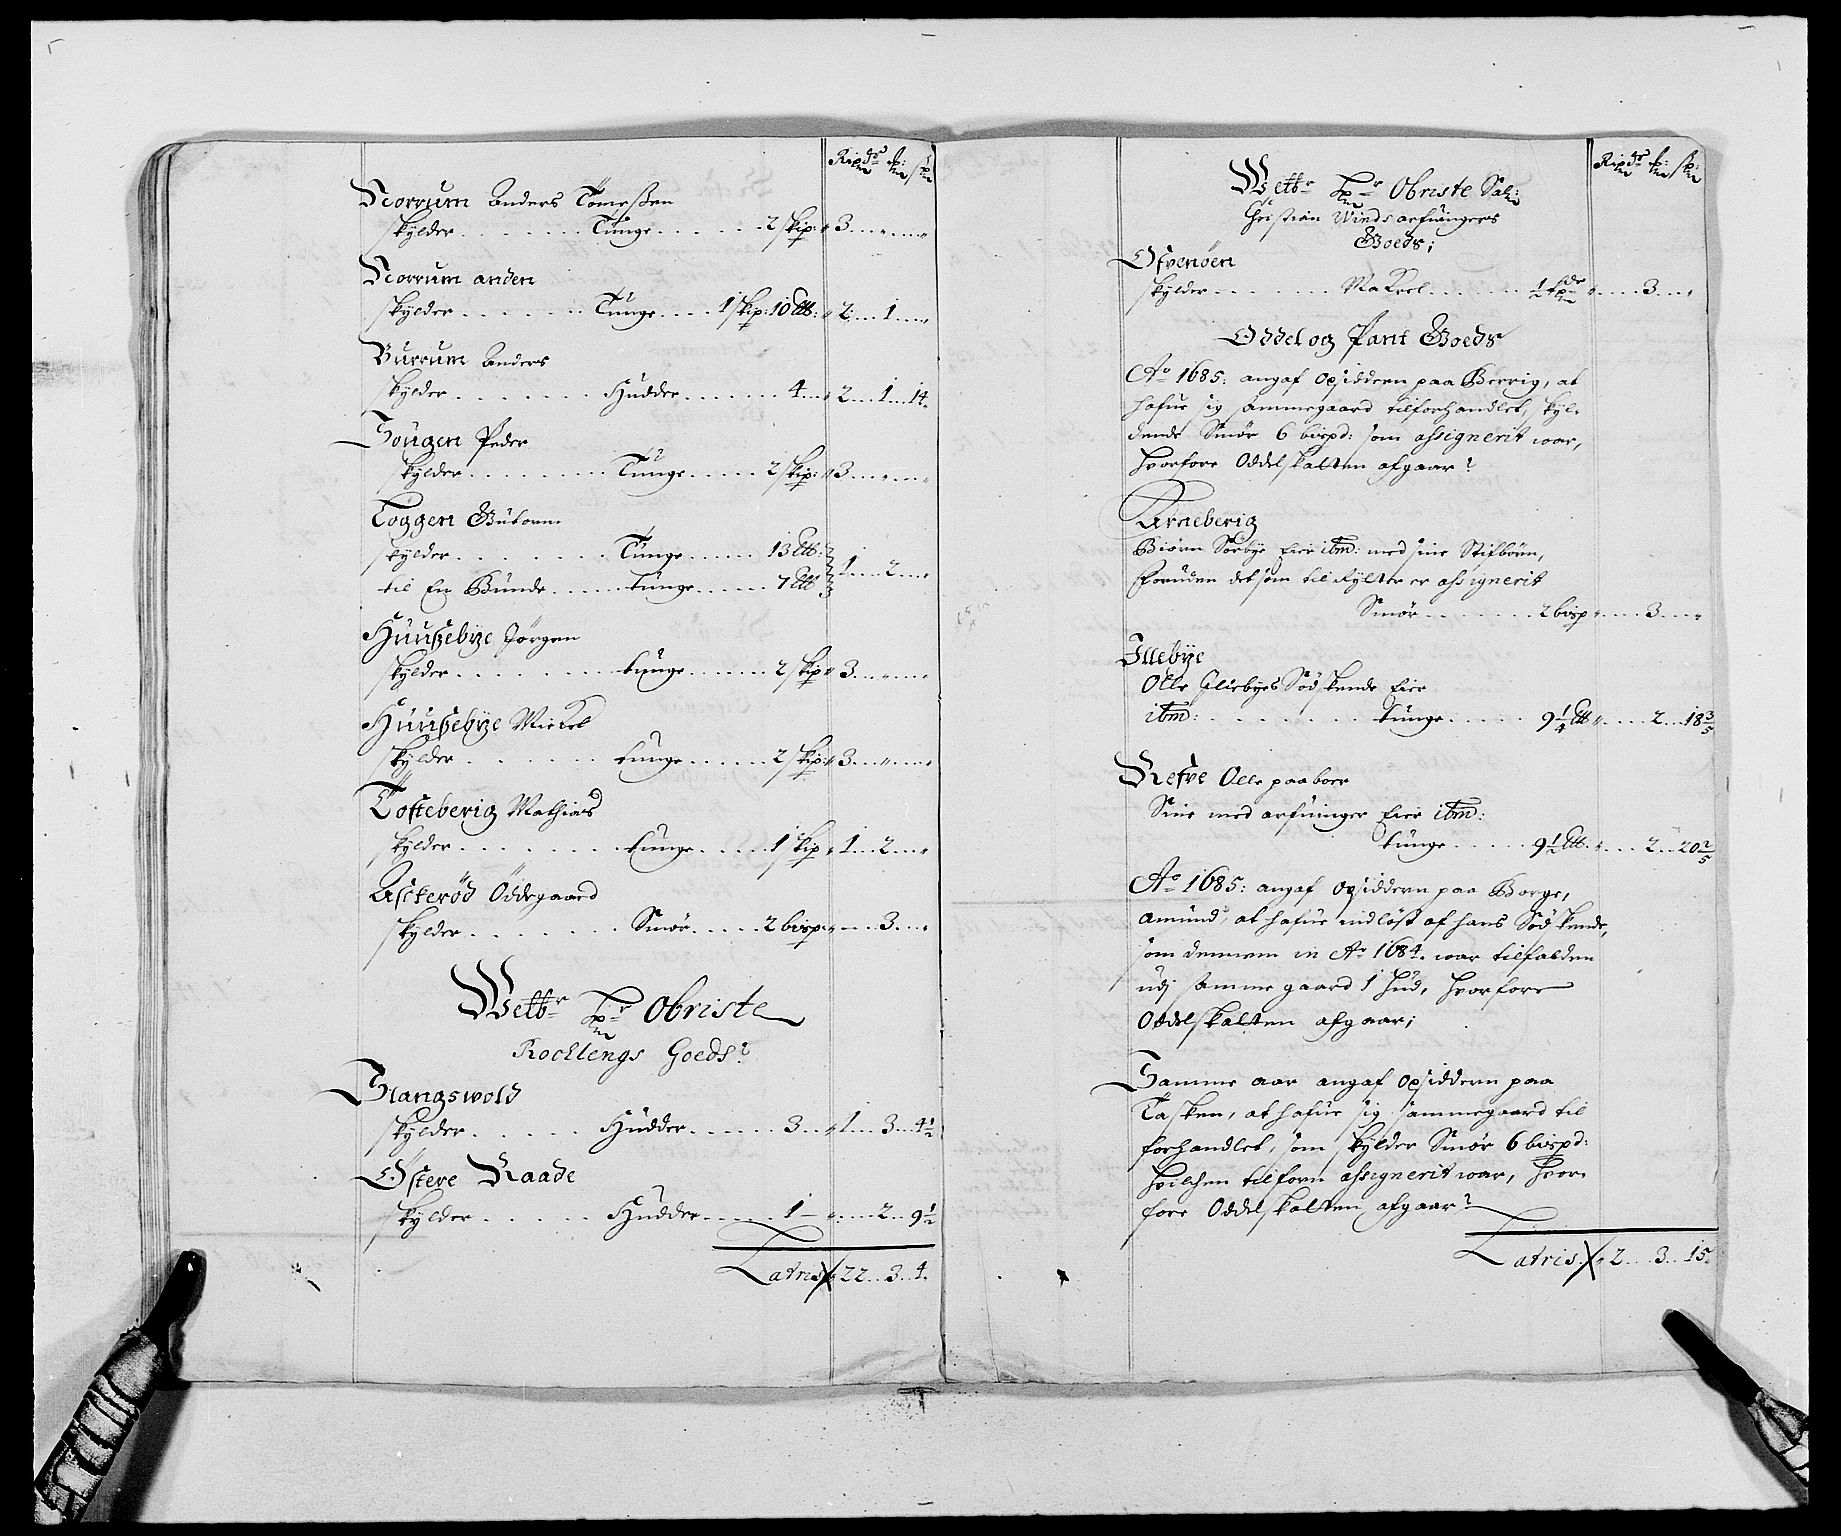 Ripdr k: sk:
Norrum Anders Tomeßen
skylder . . . . . . . Tunge . . . . . . 2 skip: " 3 . . " . . "
Norrum anden
skylder . . . . . . Tunge . . . . 1 skip: 10 Ltt: " 2 . . 1 . . "
Burrum Anders
skylder . . . . . . . Hudder . . . . . . . 4 . . " 2 . . 1 . . 14 "
Hougen Peder
skylder . . . . . . . Tunge . . . . . 2 skip: " 3 . . " . . "
Toggen Gutorm
skylder . . . . . . . Tunge . . . . . 13 Ltt:
til En Bunde . . . . . tunge . . . . . 7 Ltt 1 . . 2 . . "
Huußebye Jørgen
skylder . . . . . . . tunge . . . . . . 2 skip " 3 . . " . . "
Huußebye Mickel
skylder . . . . . . . tunge . . . . . 2 skip: " 3 . . " . . "
Tofteberig Mathias
skylder . . . . . . . tunge . . . . . 1 skip " 1 . . 2 . . "
Asterød Ödegaard
skylder . . . . . . . Smør . . . . . 2 bisp: " . . . 3 . . "
Welbr Hr Obriste
Rocklengs Goeds?
Slangswold
skylder . . . . . Hudder . . . . . . 3 . . " 1 . . 3 . . 4 1/2
Östere Raade
skylder . . . . . Hudder . . . . . 1 — " . . . 2 . . 9 1/2
Latris " 22 . . 3 . . 4 "
Ripdr k: sk:
Welbr Hr Obriste Sal:
Christian Winds arfuingers
Goeds;
Ofvenöen
skylder . . . . . . Makrel . . . . . . 1/2 " . . . 3 . . "
Oddel og Pant Goeds
Ao 1685: angaf Opsiddern paa Berrig, at
hafue sig sammegaard tilforhandlet, skyl-
dende Smør 6 bispd: som assignerit war,
hvorfore Oddelskatten afgaar?
Arneberig
Biørn Sørbye Eier itm: med sine Stifbørn,
Foruden det som til Kylter er assignerit
Smør . . . . . . . 2 bisp " . . . 3 . . "
Illebye
Olle Illebyes Sødskende Eier
itm: . . . . . . . . tunge . . . . . 9 1/4 Ltt " . . . 2 . . 18 3/5
Refve Olle paaboer
Sine med arfuinger Eier itm:
tunge . . . . . 9 1/2 Ltt. " . . . 2 . . 20 2/5
Ao 1685: angaf Opsiddern paa Borge,
Amund, at hafue indløst af hans Sødskende,
som dennem in Ao 1684. war tilfalden
udj samme gaard 1 hud, hvorfore
Oddelskatten afgaar;
Samme aar angaf Opsiddern paa
Tasken, at hafue sig sammegaard til
forhandlet, som skylder Smør 6 bispd:
hvilchen tilforn assignerit war, hvor-
fore Oddelskatten afgaar?
Latris " 2 . . 3 . . 15 "